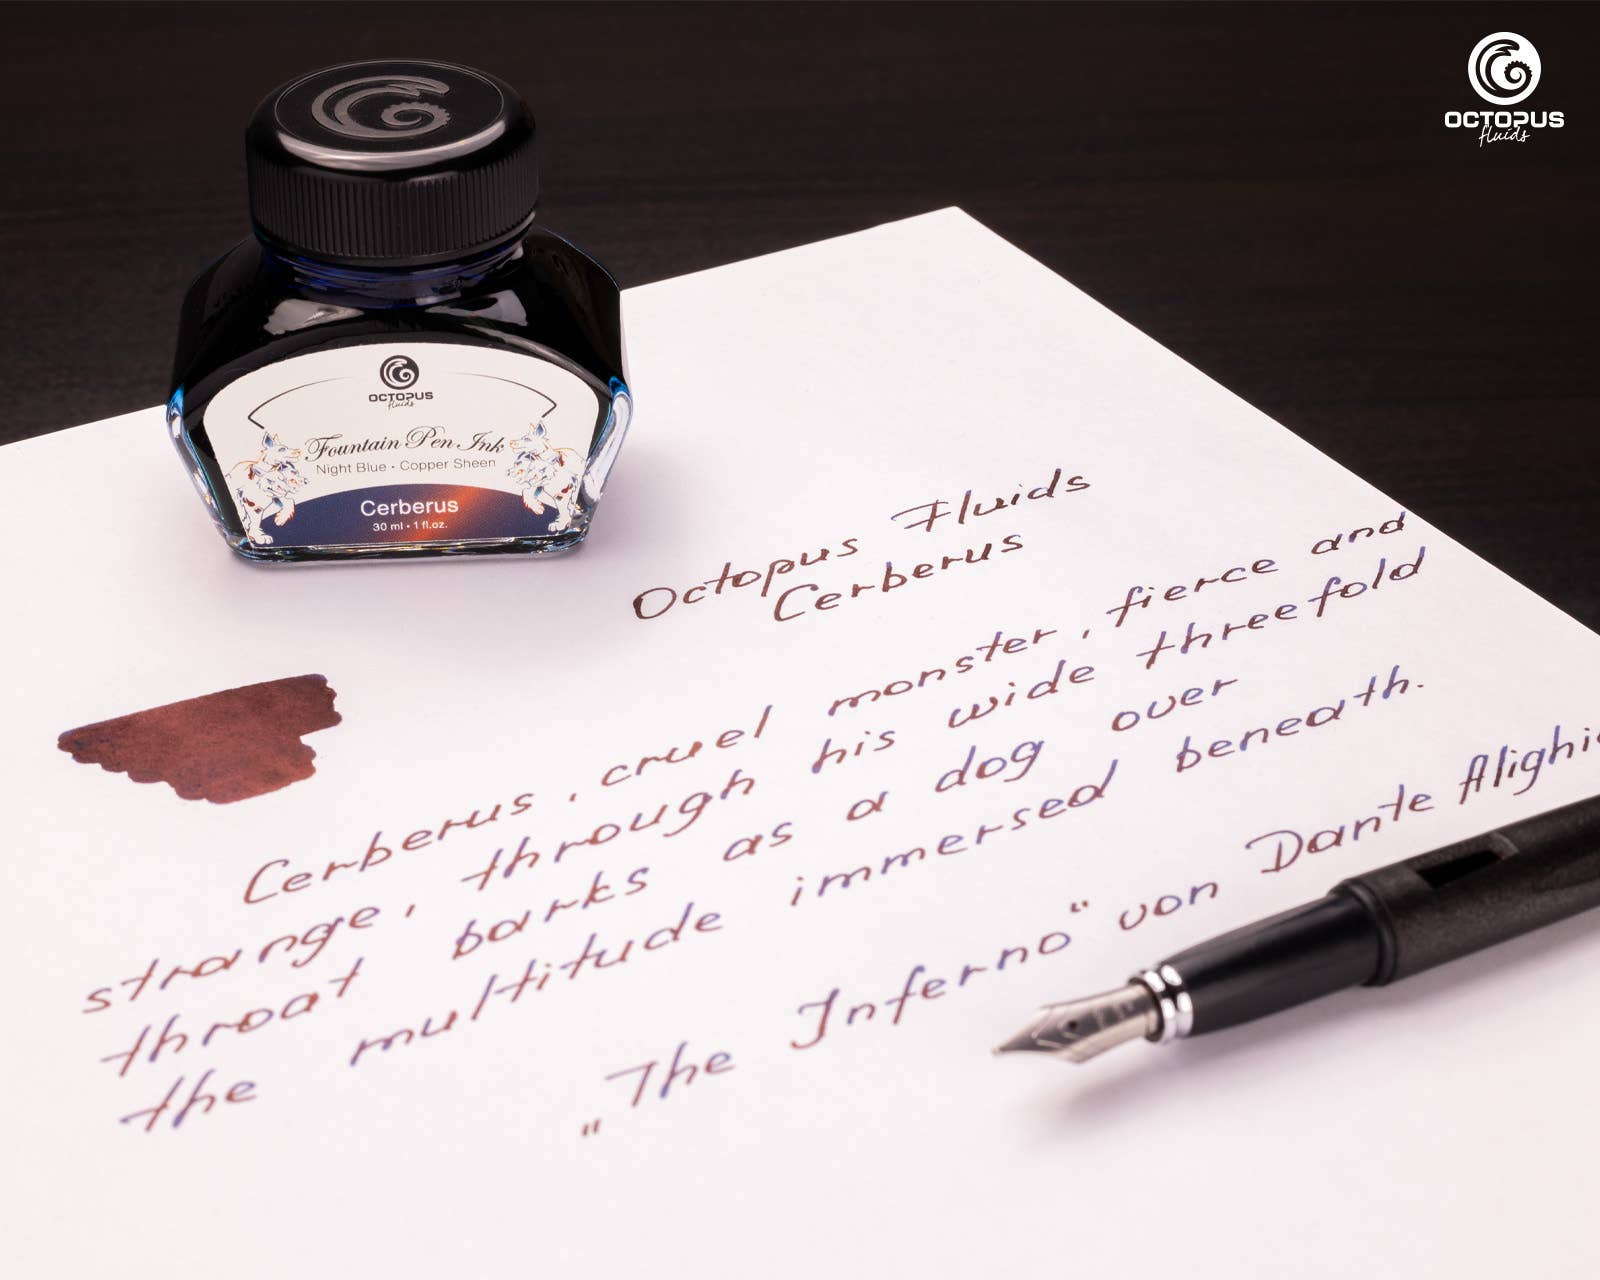 OCTOPUS
fluids
OCTOPUS
fluids
Fountain Pen Ink
Night Blue • Copper Sheen
Cerberus
30 ml • 1 fl.oz.
Octopus Fluids
Cerberus
Cerberus, cruel monster, fierce and
strange, through his wide threefold
throat barks as a dog over
the multitude immersed beneath.
„The Inferno“ von Dante Alighi